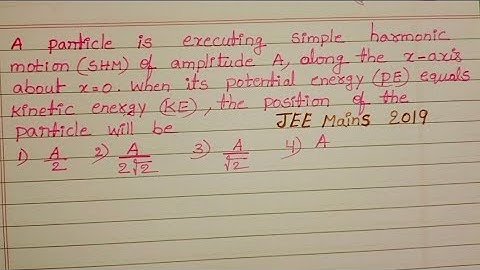 A particle is executing simple harmonic
motion (SHM) of amplitude A, along the x-axis
about x=0. When its potential energy (PE) equals
kinetic energy (KE), the position of the
particle will be JEE Mains 2019
1) A/2 2) A/2√2 3) A/√2 4) A